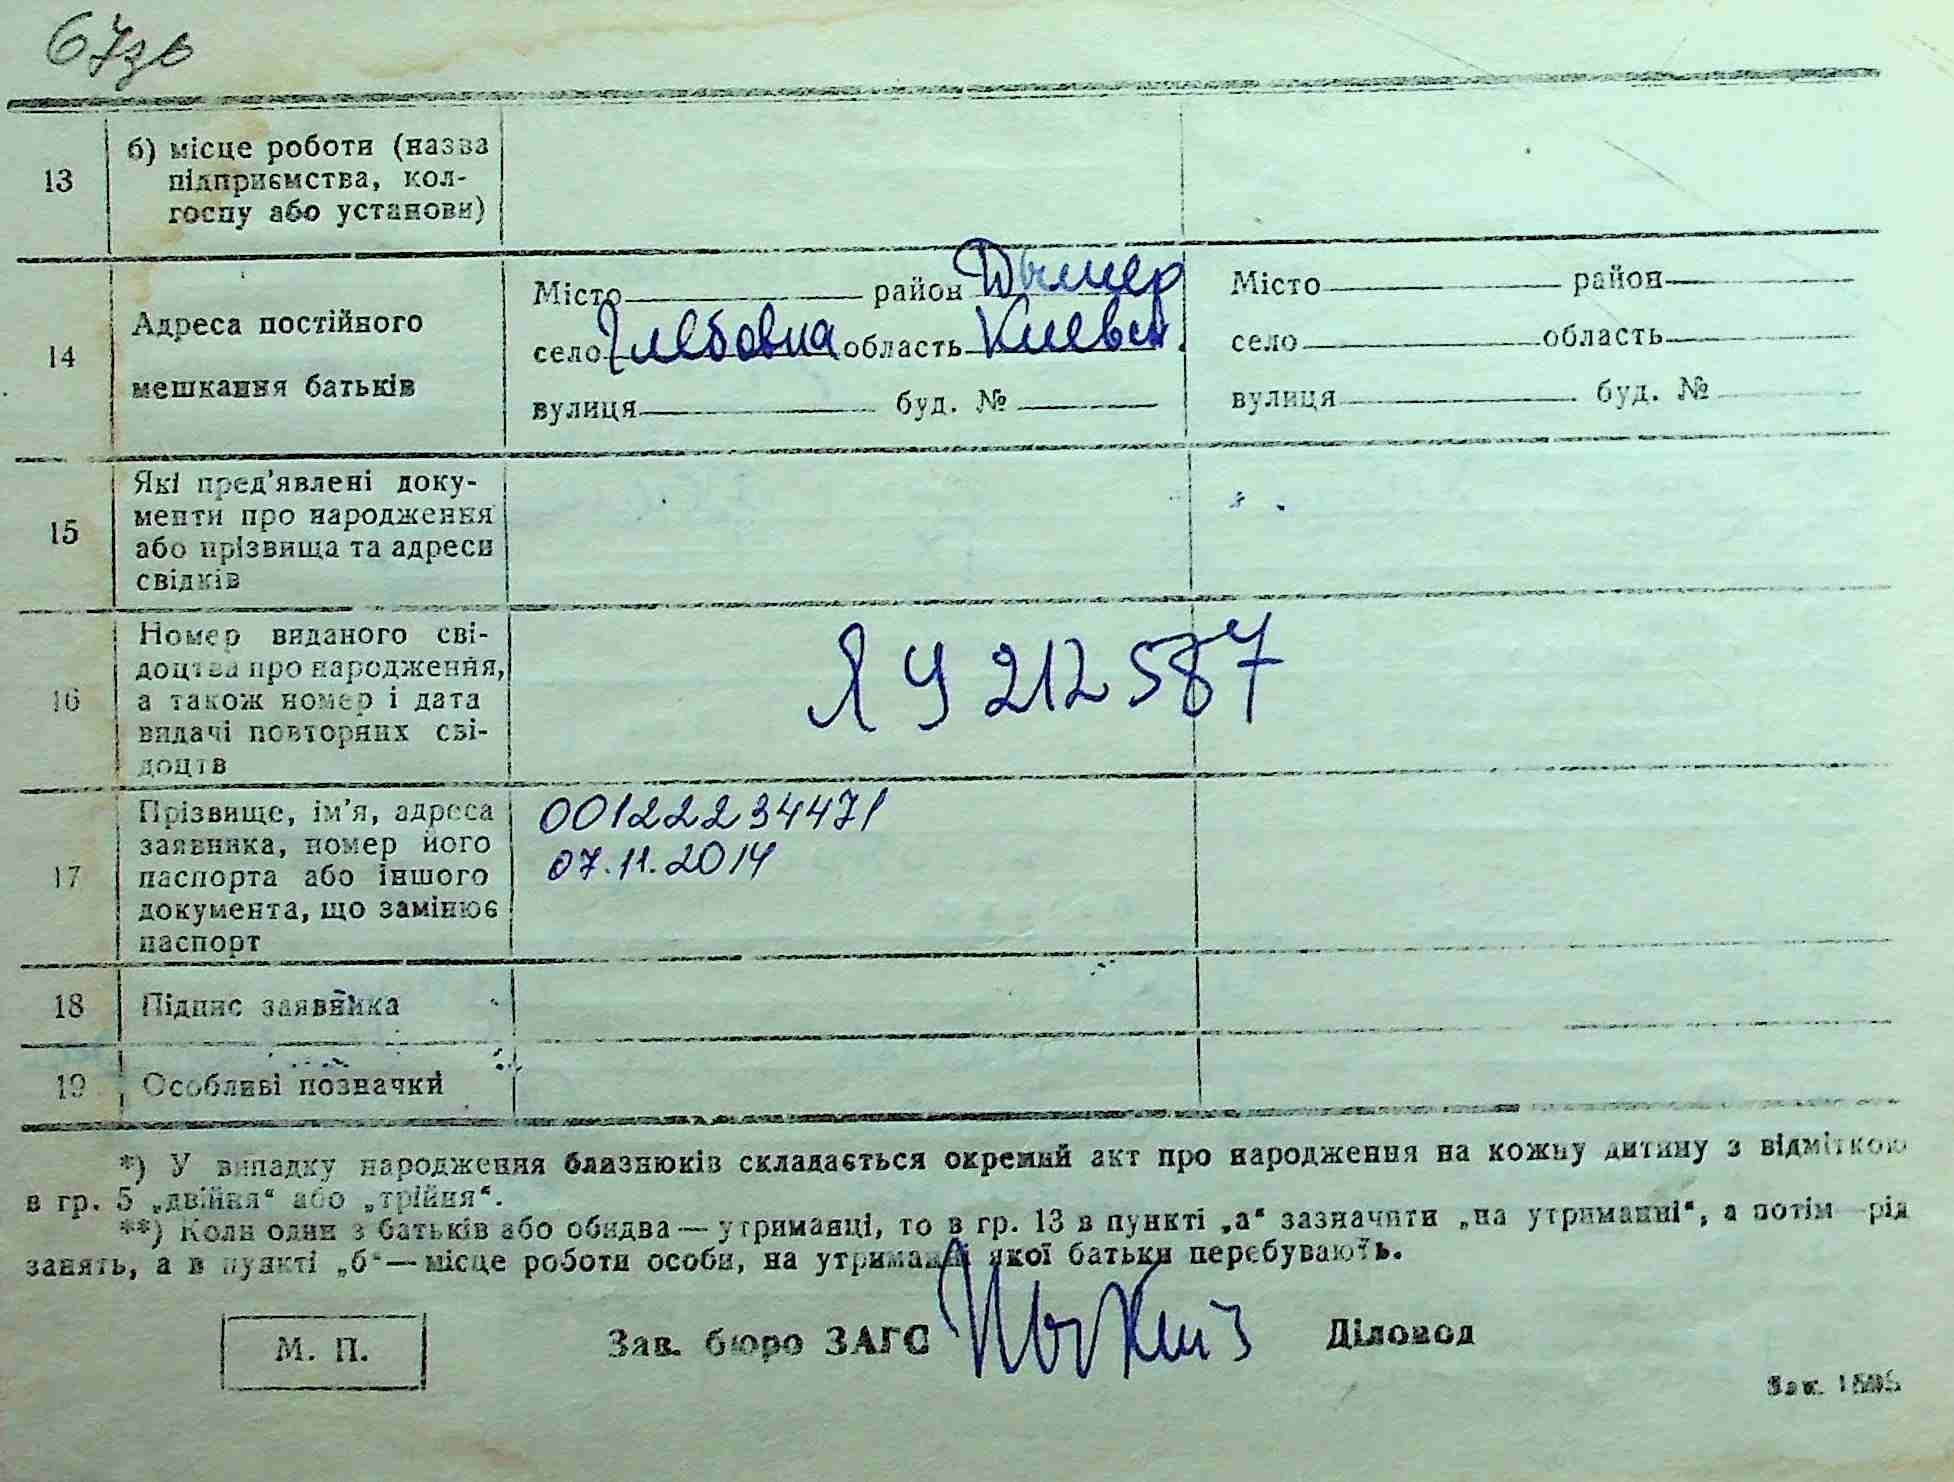 67зв
13
б) місце роботи (назва
підприємства, кол-
госпу або установи)
14
Адреса постійного
мешкання батьків
Місто район Дымер
село Глебовка область Киевск.
вулиця буд. №
Місто район
село область
вулиця буд. №
15
Які пред'явлені доку-
менти про народження
або прізвища та адреси
свідків
16
Номер виданого сві-
доцтва про народження,
а також номер і дата
видачі повторних сві-
доцтв
ЯУ 212587
17
Прізвище, ім'я, адреса
заявника, номер його
паспорта або іншого
документа, що замінює
паспорт
00122234471
07.11.2014
18
Підпис заявника
19
Особливі позначки
*) У випадку народження близнюків складається окремий акт про народження на кожну дитину з відміткою
в гр. 5 „двійня“ або „трійня“.
**) Коли один з батьків або обидва — утриманці, то в гр. 13 в пункті „а“ зазначити „на утриманні“, а потім рід
занять, а в пункті „б“ — місце роботи особи, на утриманні якої батьки перебувають.
М. П.
Зав. бюро ЗАГС
Діловод
Зак.